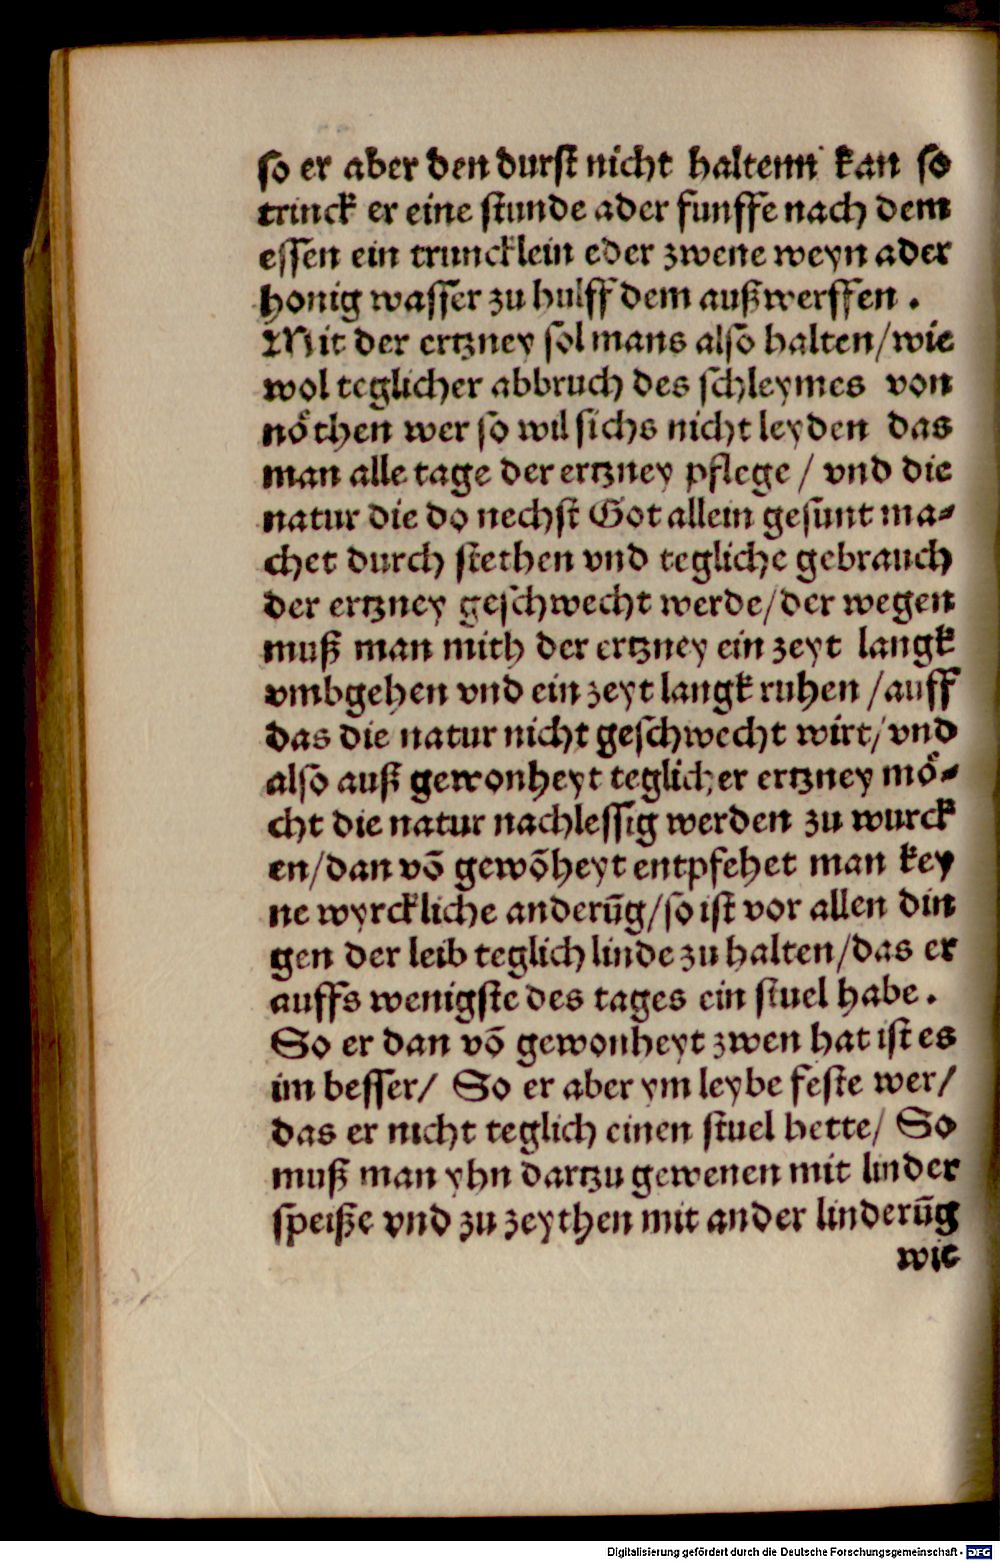 so er aber den durst nicht haltenn kan so
trinck er eine stunde ader funffe nach dem
essen ein truncklein eder zwene weyn ader
honig wasser zu hulff dem außwerffen .
Mit der ertzney sol mans also halten/wie
wol teglicher abbruch des schleymes von
nöthen wer so wil sichs nicht leyden das
man alle tage der ertzney pflege / vnd die
natur die do nechst Got allein gesunt ma⸗
chet durch stethen vnd tegliche gebrauch
der ertzney geschwecht werde/der wegen
muß man mith der ertzney ein zeyt langk
vmbgehen vnd ein zeyt langk ruhen /auff
das die natur nicht geschwecht wirt/vnd
also auß gewonheyt teglicher ertzney mö⸗
cht die natur nachlessig werden zu wurck
en/dan võ gewõheyt entpfehet man key
ne wyrckliche anderũg/so ist vor allen din
gen der leib teglich linde zu halten/das er
auffs wenigste des tages ein stuel habe .
So er dan võ gewonheyt zwen hat ist es
im besser/ So er aber ym leybe feste wer/
das er nicht teglich einen stuel hette/ So
muß man yhn dartzu gewenen mit linder
speiße vnd zu zeythen mit ander linderũg
wie
Digitalisierung gefördert durch die Deutsche Forschungsgemeinschaft - DFG